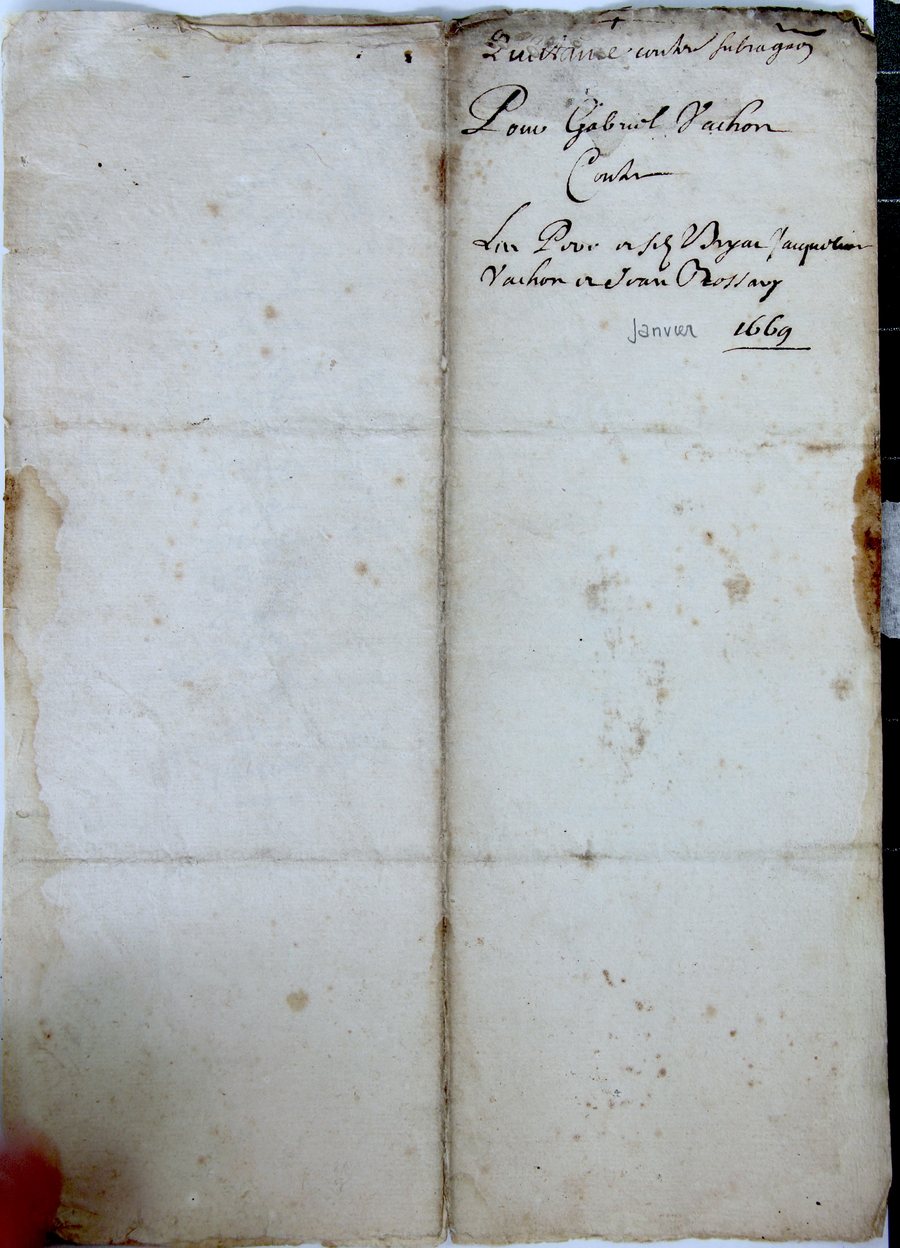 Quittance contre subrogaõn
Pour Gabriel Vachon
Contre
Les Pere et filz Bryac Jacqueline
Vachon et Jean Rossary
Janvier 1669